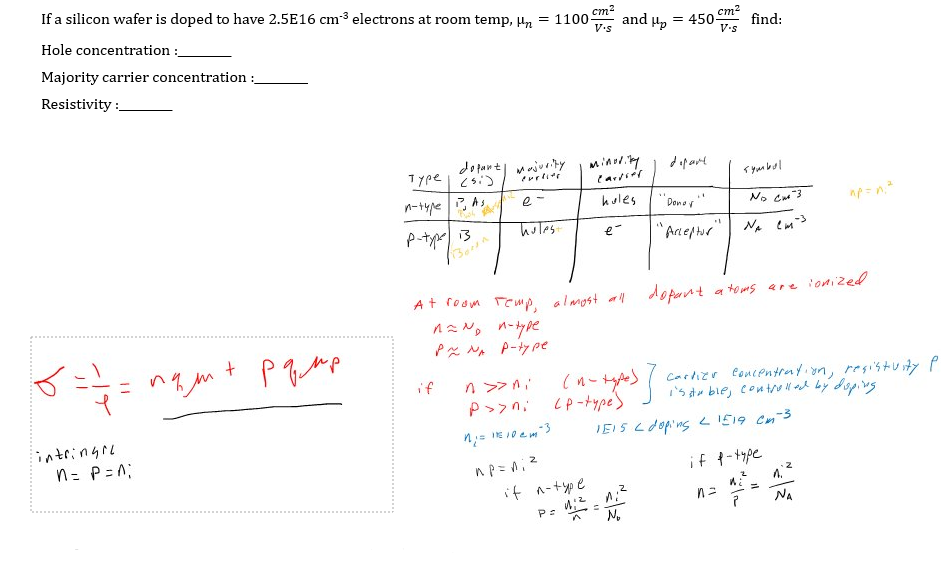 If a silicon wafer is doped to have 2.5E16 cm⁻³ electrons at room temp, μₙ = 1100 cm²/V·s and μₚ = 450 cm²/V·s find:
Hole concentration :________
Majority carrier concentration :________
Resistivity :________
Type dopant (si) majority carrier minority carrier dopant symbol
n-type P, As e⁻ holes "Donor" N_D cm⁻³
p-type B Boron holes e⁻ "Acceptor" N_A cm⁻³
np = nᵢ²
At room Temp, almost all dopant atoms are ionized
n ≈ N_D n-type
p ≈ N_A p-type
σ = 1/ρ = nqμₙ + pqμₚ
if n >> nᵢ (n-type)
p >> nᵢ (p-type)
carrier concentration, resistivity ρ
is stable, controlled by doping
nᵢ = 1E10 cm⁻³
1E15 < doping < 1E19 cm⁻³
n = p = nᵢ
np = nᵢ²
if n-type
p = nᵢ²/n = nᵢ²/N_D
if p-type
n = nᵢ²/p = nᵢ²/N_A